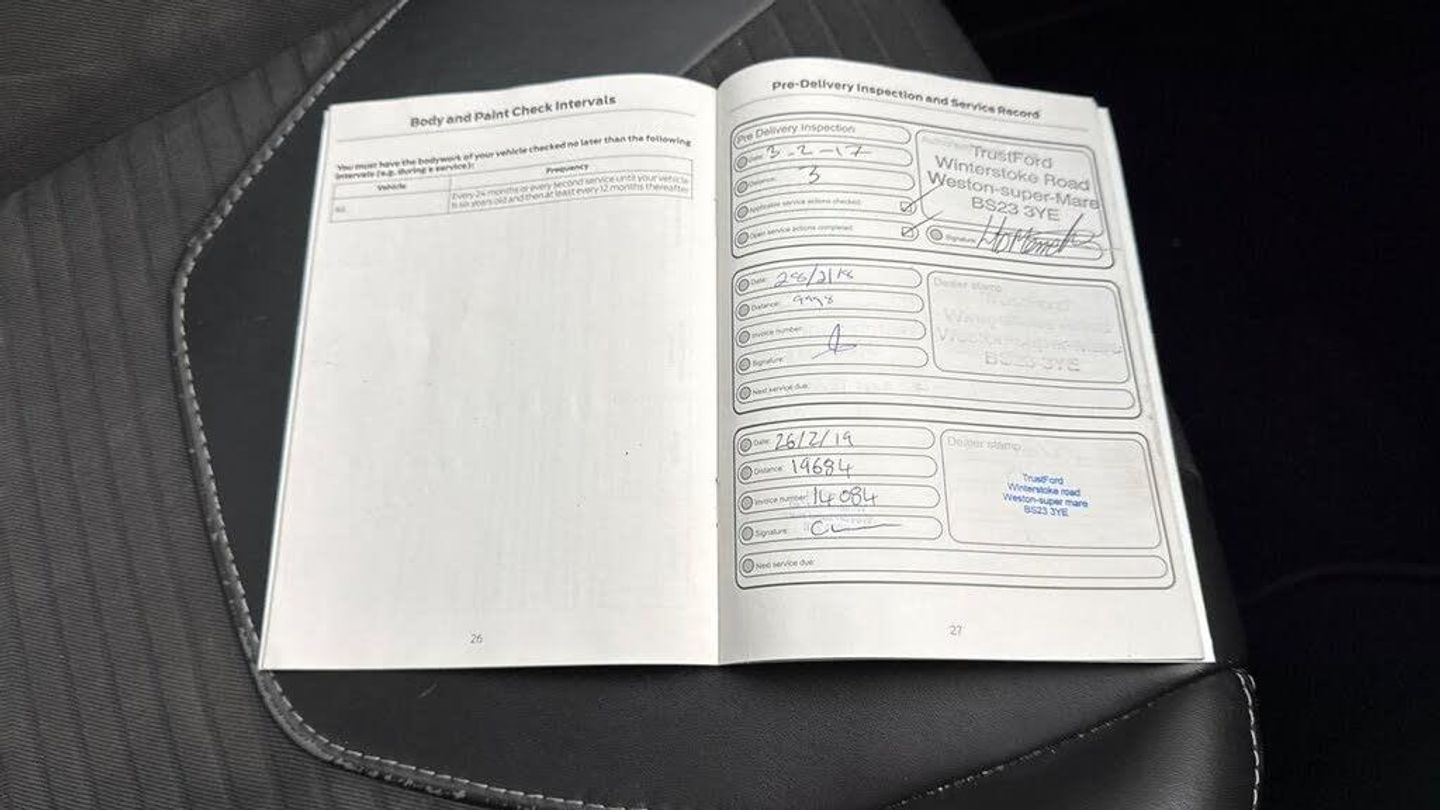 Body and Paint Check Intervals
You must have the bodywork of your vehicle checked no later than the following
intervals (e.g. during a service):
Vehicle
Frequency
All.
Every 24 months or every second service until your vehicle
is six years old and then at least every 12 months thereafter
26
Pre-Delivery Inspection and Service Record
Pre Delivery Inspection
Date: 3-2-17
Distance: 3
Applicable service actions checked:
Open service actions completed:
TrustFord
Winterstoke Road
Weston-super-Mare
BS23 3YE
Signature:
Date: 28/2/18
Distance:
Invoice number:
Signature:
Next service due:
Dealer stamp
TrustFord
BS23 3YE
Date: 26/2/19
Distance: 19684
Invoice number: 14084
Signature:
Next service due:
Dealer stamp
TrustFord
Winterstoke road
Weston-super mare
BS23 3YE
27